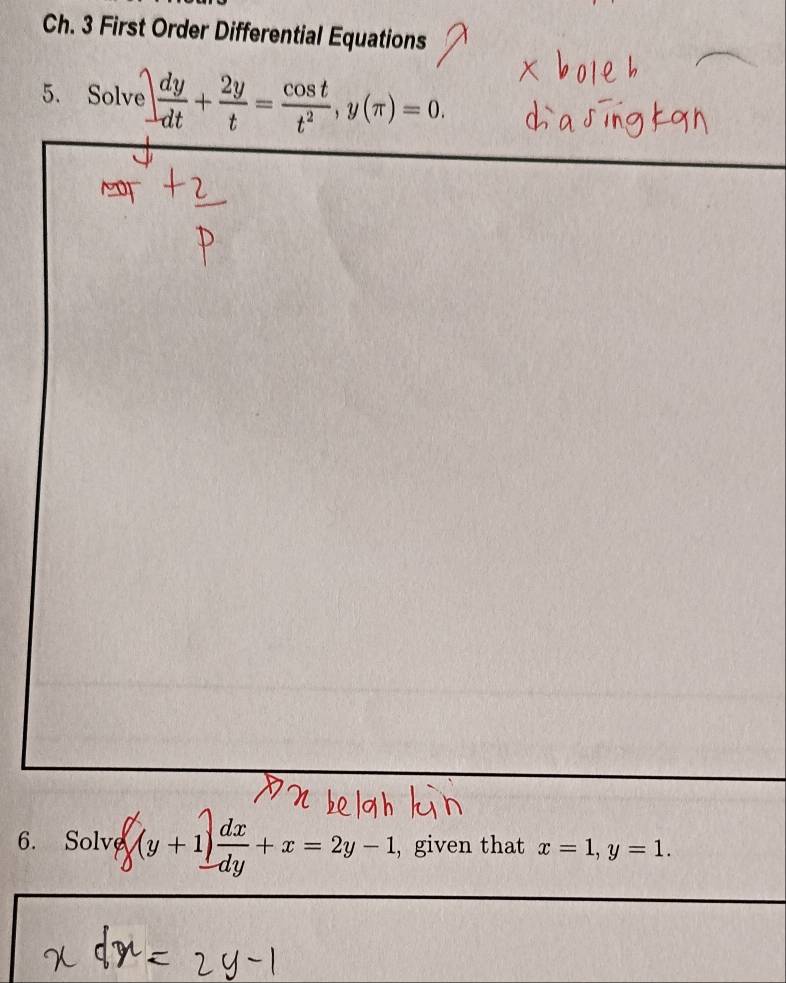 Ch. 3 First Order Differential Equations
x boleh
diasingkan
5. Solve dy/dt + 2y/t = cos t/t², y(π) = 0.
+ 2/p
x belah kin
6. Solve (y + 1) dx/dy + x = 2y − 1, given that x = 1, y = 1.
x dx = 2y - 1